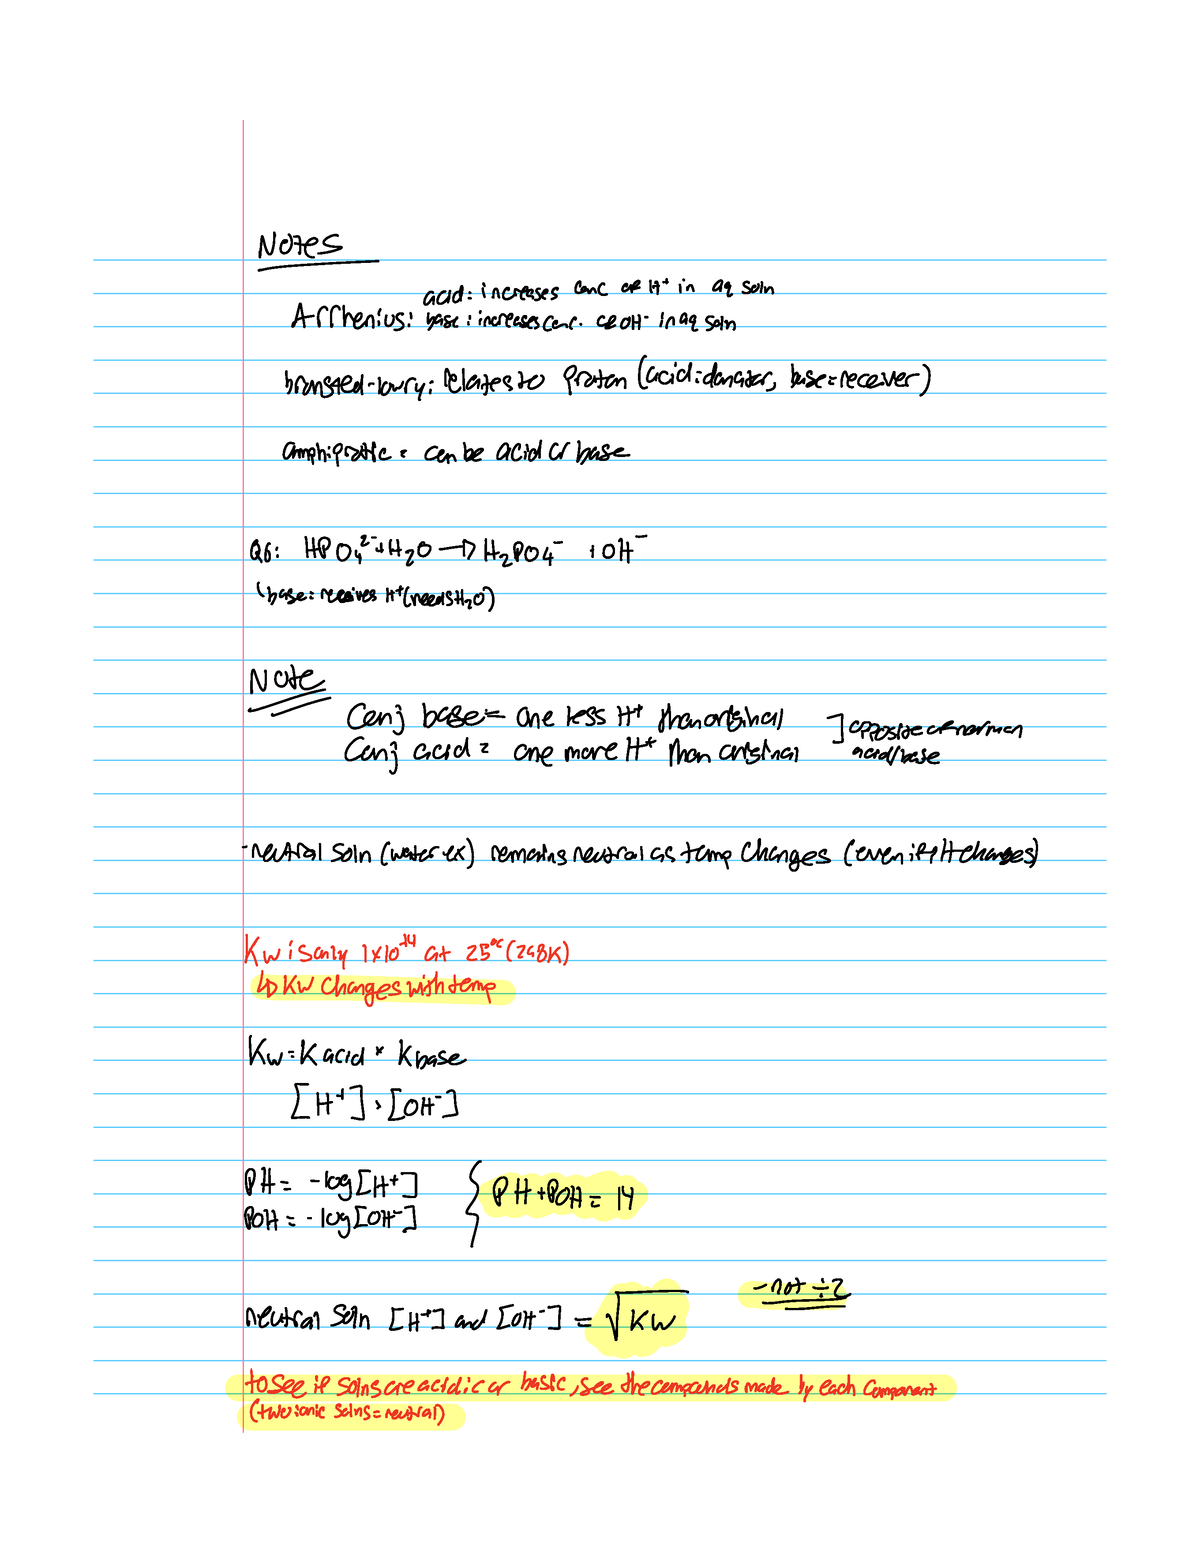 Notes
acid: increases conc of H⁺ in aq soln
Arrhenius: base: increases conc. of OH⁻ in aq soln
bronsted-lowry: relates to proton (acid=donator, base=receiver)
amphiprotic = can be acid or base
Q6: HPO₄²⁻ + H₂O → H₂PO₄⁻ + OH⁻
base: receives H⁺ (needs H₂O)
Note
Conj base = one less H⁺ than original ] opposite of normal
Conj acid = one more H⁺ than original acid/base
-neutral soln (water ex) remains neutral as temp changes (even if pH changes)
Kw is only 1x10⁻¹⁴ at 25°C (298K)
↳ Kw changes with temp
Kw = K acid × K base
[H⁺] · [OH⁻]
PH = -log[H⁺]
POH = -log[OH⁻] } PH + POH = 14
-not ÷2
neutral soln [H⁺] and [OH⁻] = √Kw
to see if solns are acidic or basic, see the compounds made by each component
(two ionic solns = neutral)